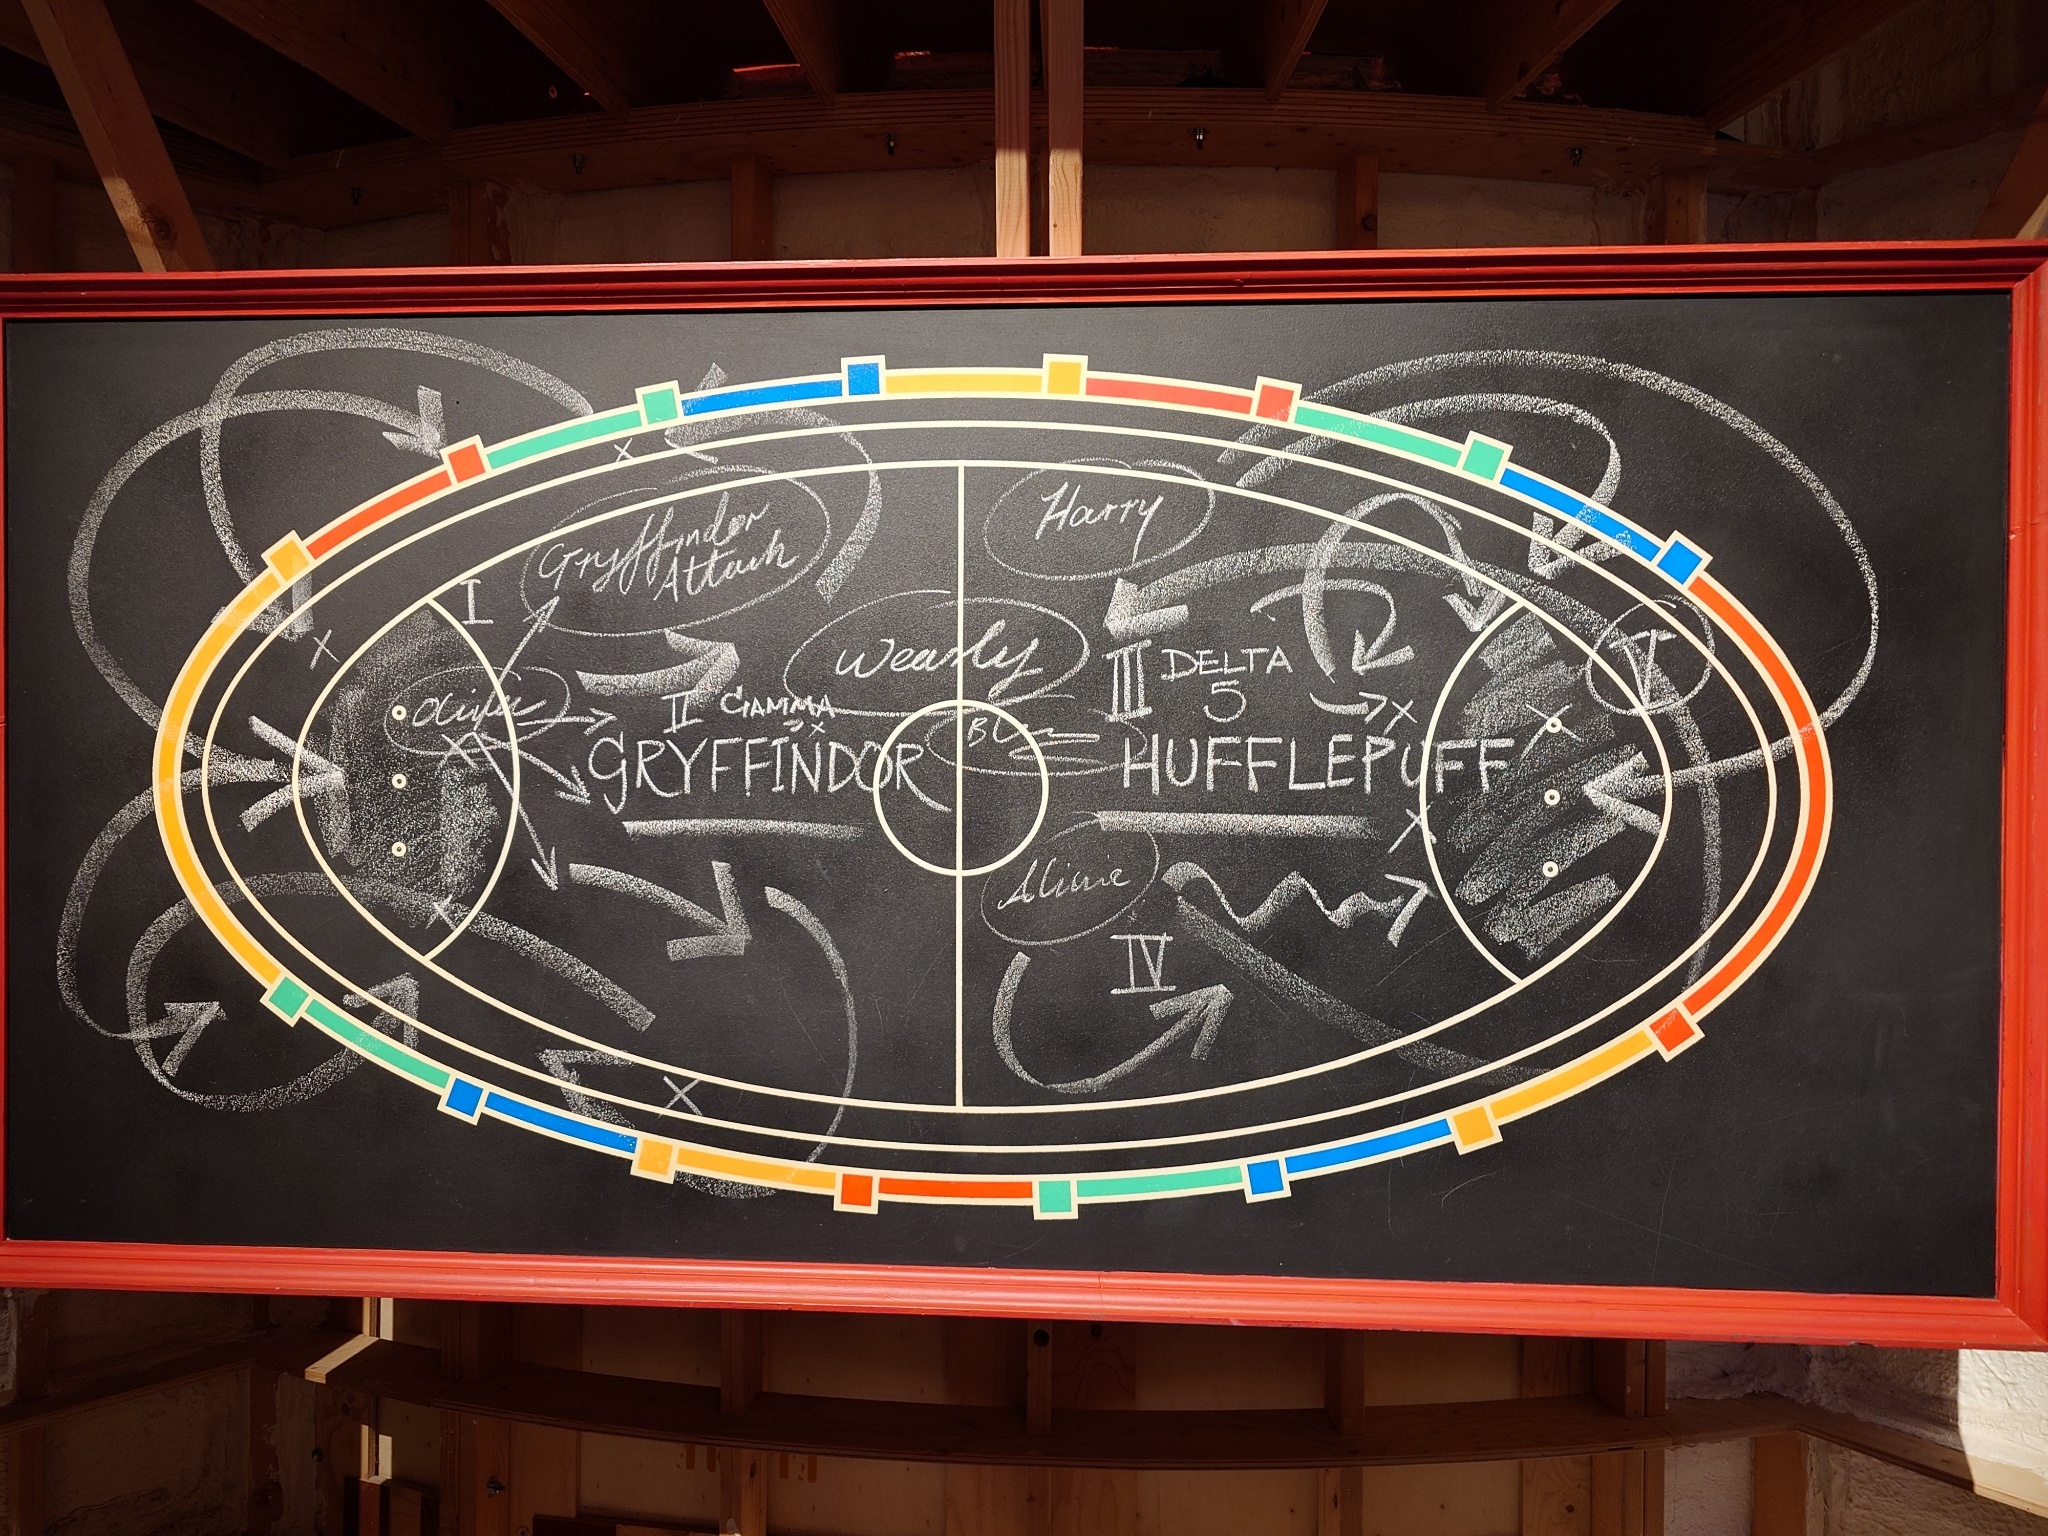 Gryffindor
Attack
Harry
I
Weasly
Oliver
II GAMMA
III DELTA
5
V
GRYFFINDOR
HUFFLEPUFF
IV